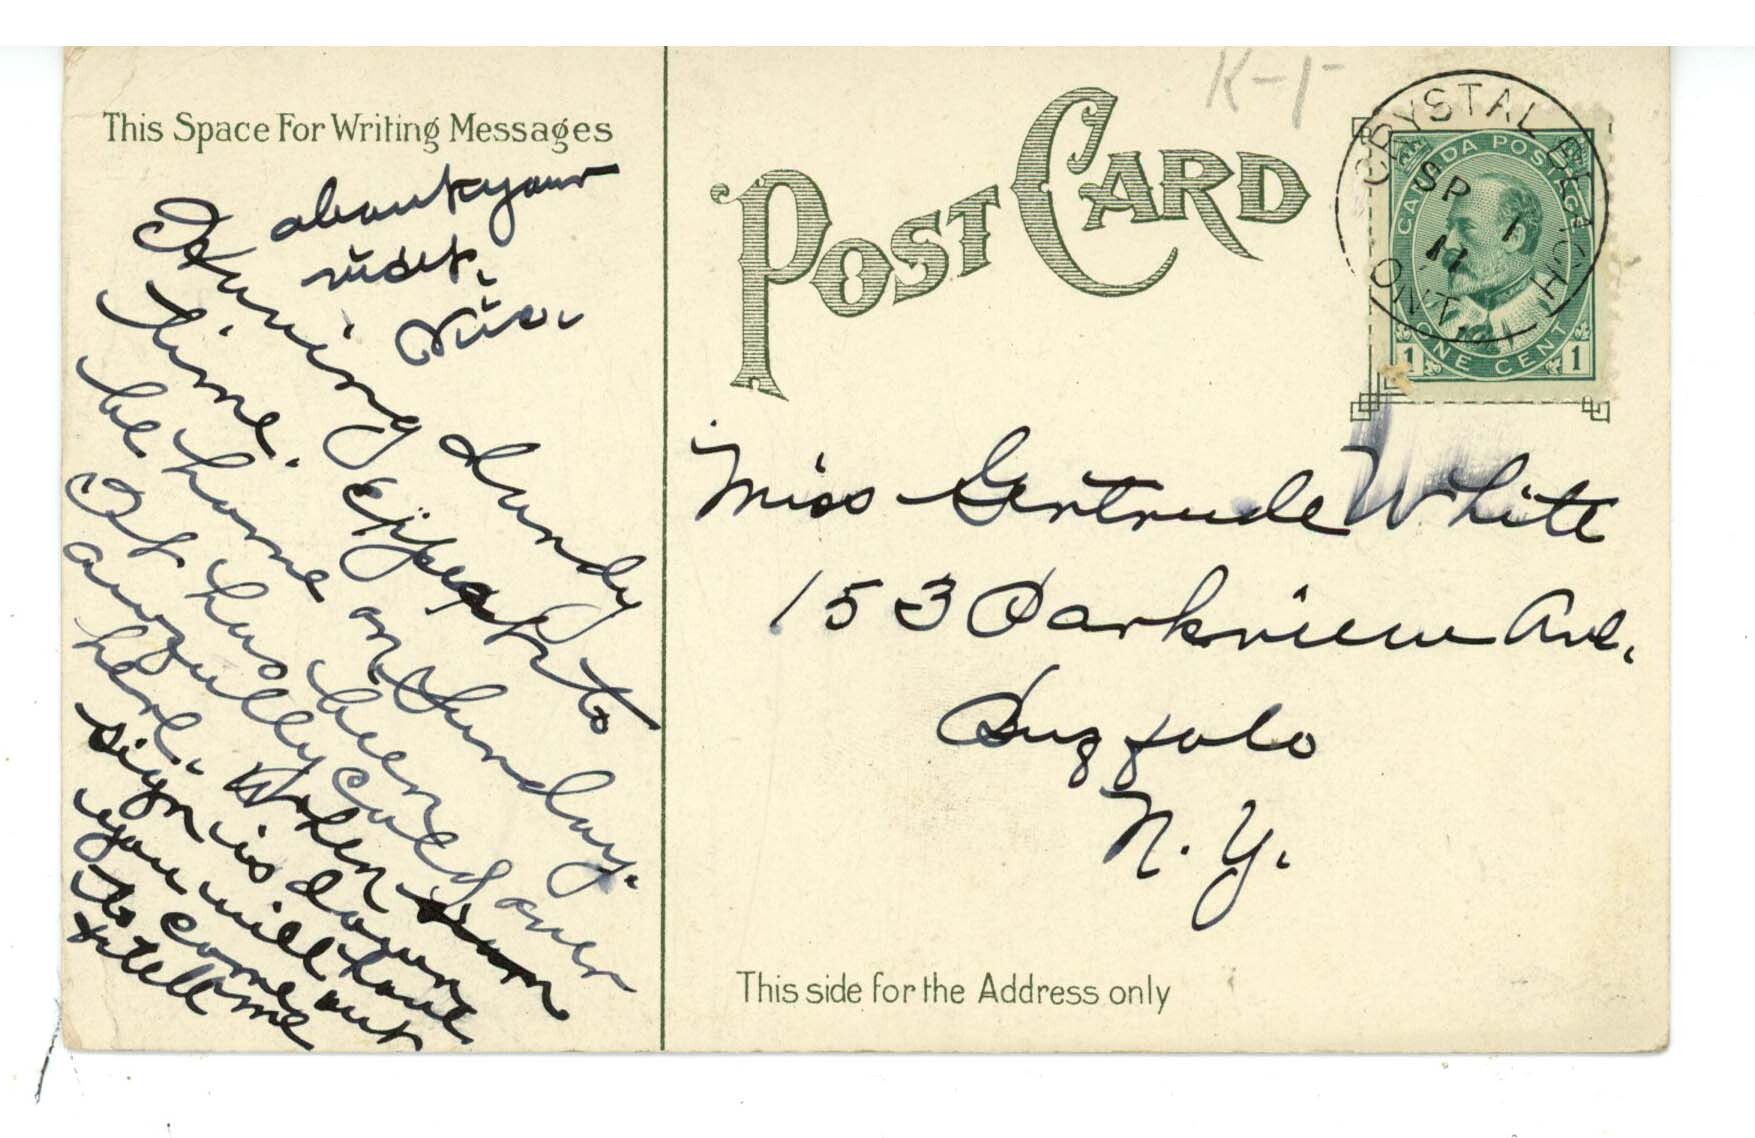 This Space For Writing Messages
Having dandy
time. Expect to
be home on Sunday.
It has been
awfully cold over
here. When
sign is down
you will have
to come out
& tell me
about your
visit.
Vio.
K-1
POST CARD
CRYSTAL BEACH
SP 1
11
ONT.
CANADA POSTAGE
1 ONE CENT 1
Miss Gertrude White
153 Parkview Ave.
Buffalo
N. Y.
This side for the Address only